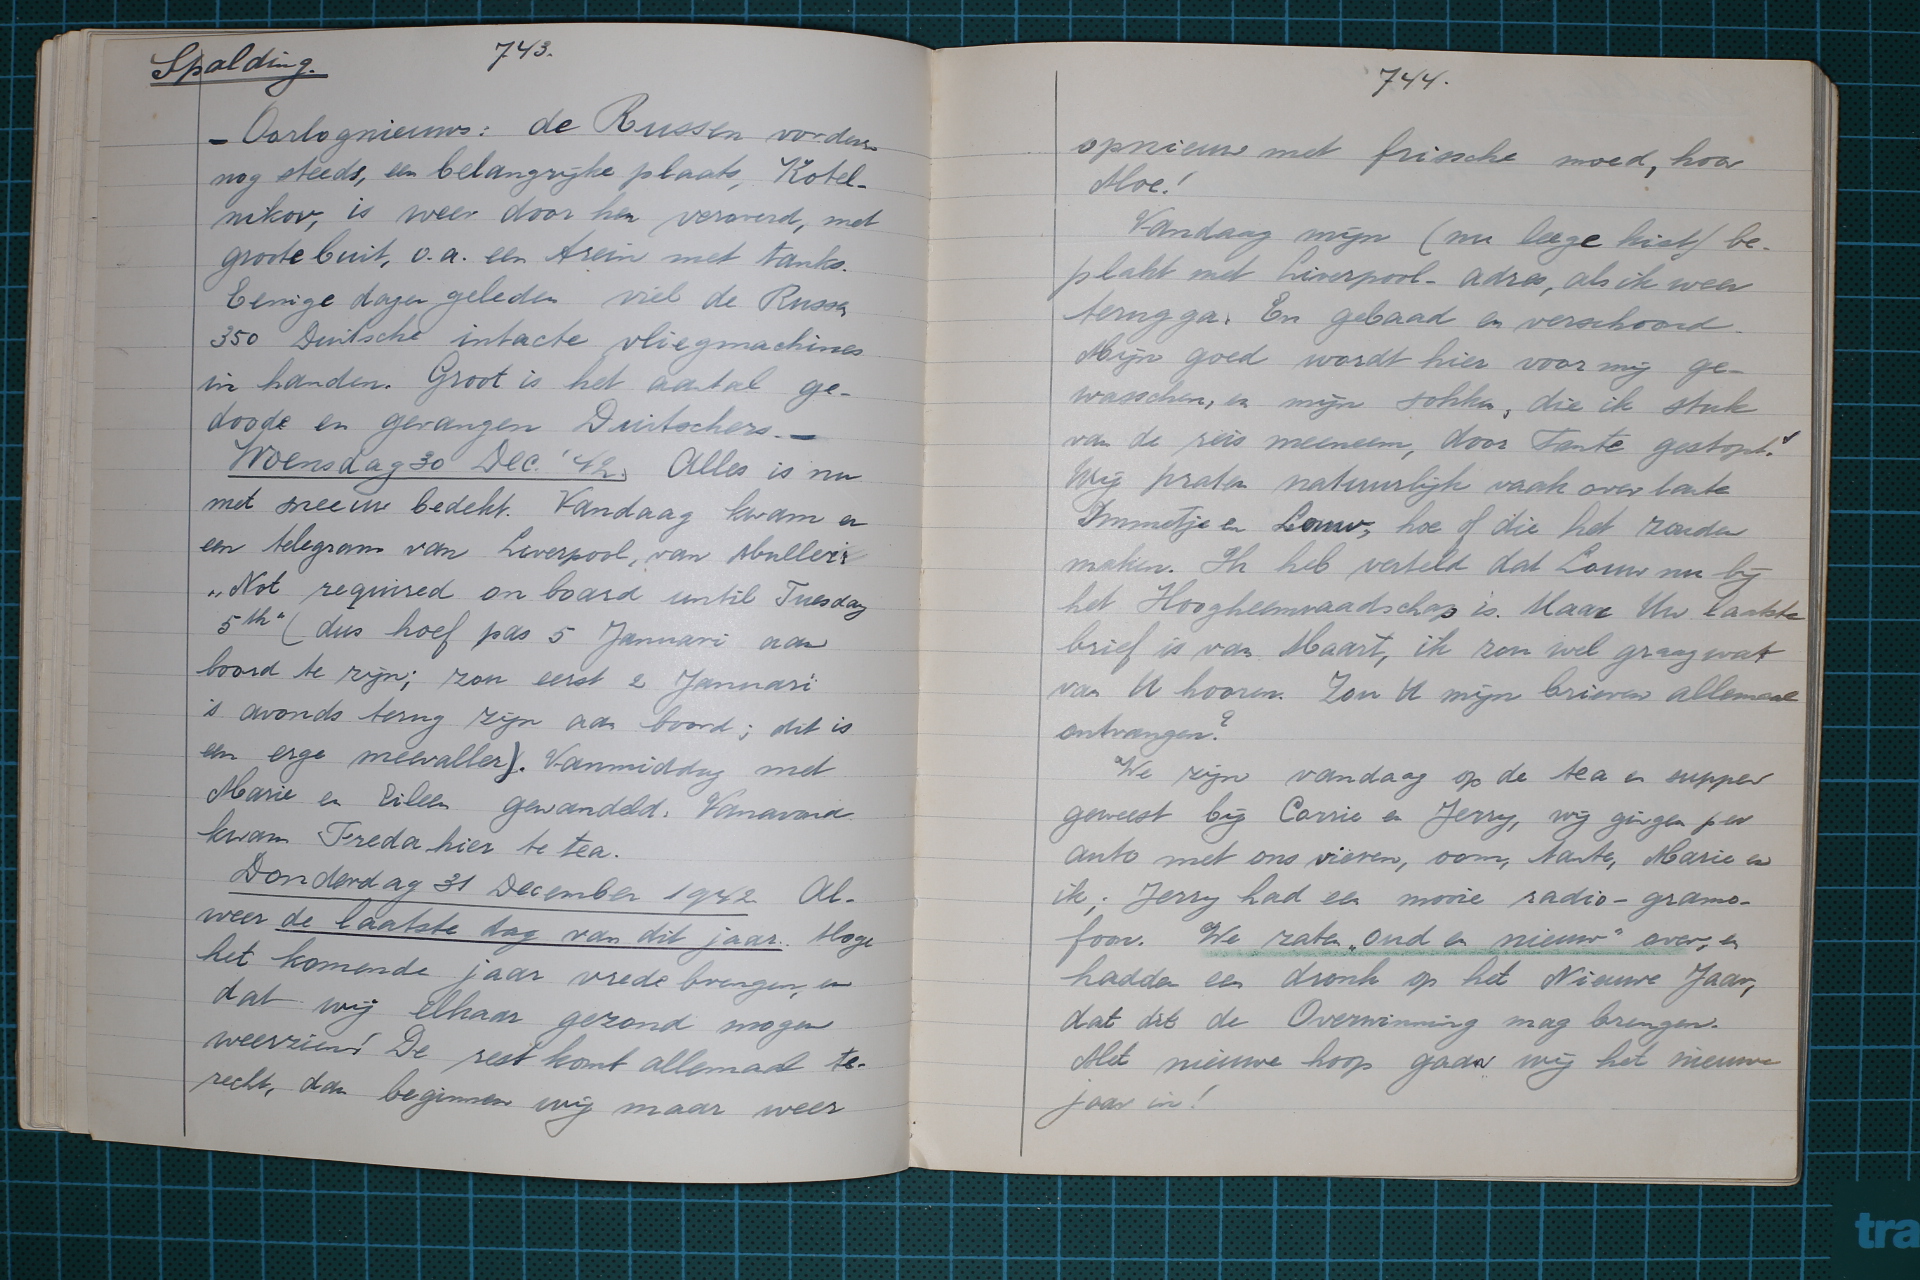 Spalding.
743.
— Oorlognieuws: de Russen vorderen
nog steeds, een belangrijke plaats, Kotel-
nikov, is weer door hen veroverd, met
groote buit, o.a. een trein met tanks.
Eenige dagen geleden viel de Russen
350 Duitsche intacte vliegmachines
in handen. Groot is het aantal ge-
doode en gevangen Duitschers. —
Woensdag 30 Dec. '42. Alles is nu
met sneeuw bedekt. Vandaag kwam er
een telegram van Liverpool, van Mullers
„Not required on board until Tuesday
5th" (dus hoef pas 5 Januari aan
boord te zijn; zou eerst 2 Januari
's avonds terug zijn aan boord; dit is
een erge meevaller). Vanmiddag met
Marie en Eileen gewandeld. Vanavond
kwam Freda hier te tea.
Donderdag 31 December 1942. Al-
weer de laatste dag van dit jaar. Moge
het komende jaar vrede brengen, en
dat wij elkaar gezond mogen
weerzien! De rest komt allemaal te-
recht, dan beginnen wij maar weer
744.
opnieuw met frissche moed, hoor
Moe!
Vandaag mijn (nu leege kist) be-
plakt met Liverpool-adres, als ik weer
terugga. En gebaad en verschoond.
Mijn goed wordt hier voor mij ge-
wasschen, en mijn sokken, die ik stuk
van de reis meeneem, door Tante gestopt.
Wij praten natuurlijk vaak over tante
Immetje en Louw, hoe of die het zouden
maken. Ik heb verteld dat Louw nu bij
het Hoogheemraadschap is. Maar Uw laatste
brief is van Maart, ik zou wel graag wat
van U hooren. Zou U mijn brieven allemaal
ontvangen?
We zijn vandaag op de tea en supper
geweest bij Corrie en Jerry, wij gingen per
auto met ons vieren, oom, tante, Marie en
ik; Jerry had een mooie radio-gramo-
foon. We zaten „oud en nieuw" over, en
hadden een dronk op het Nieuwe Jaar,
dat dit de Overwinning mag brengen.
Met nieuwe hoop gaan wij het nieuwe
jaar in!
tra